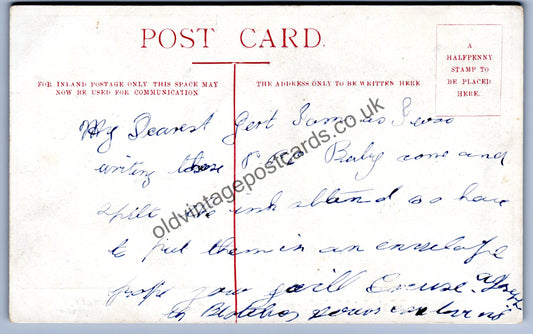 POST CARD.
A
HALFPENNY
STAMP TO
BE PLACED
HERE.
FOR INLAND POSTAGE ONLY THIS SPACE MAY
NOW BE USED FOR COMMUNICATION.
THE ADDRESS ONLY TO BE WRITTEN HERE
My Dearest Gert as I was
writing these P.Cs Baby come and
spilt the ink so have
to put them in an envelope
hope you will Excuse
oldvintagepostcards.co.uk